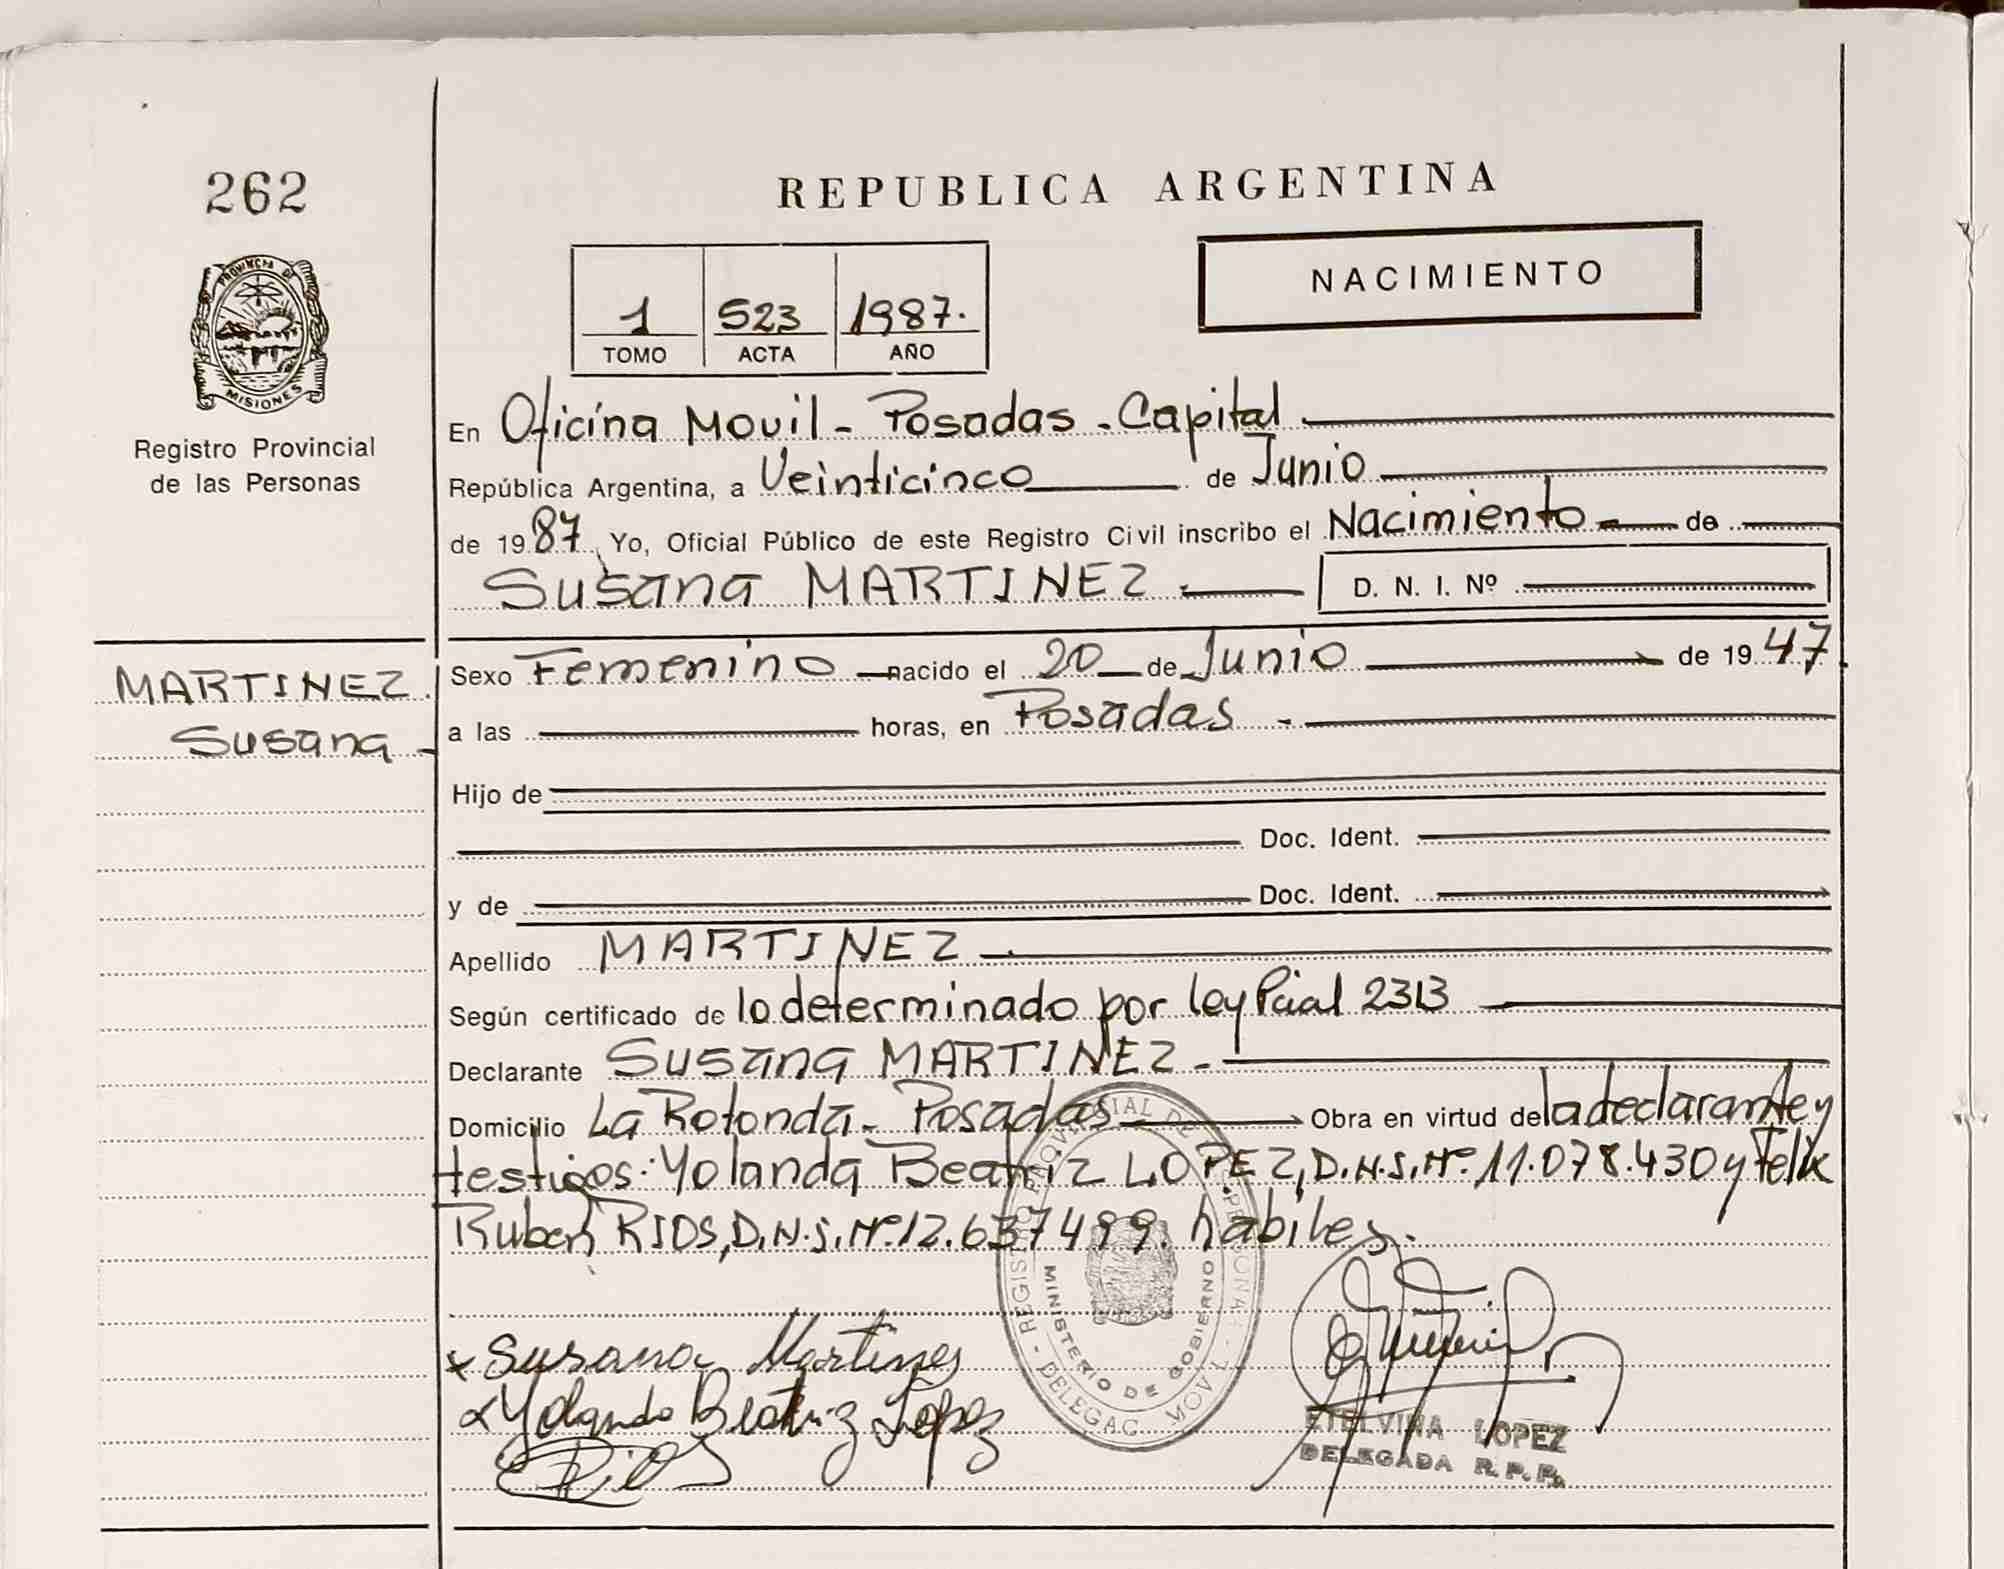 262
REPUBLICA ARGENTINA
PROVINCIA DE
MISIONES
Registro Provincial
de las Personas
1 523 1987.
TOMO ACTA AÑO
NACIMIENTO
En Oficina Movil - Posadas - Capital
República Argentina, a Veinticinco de Junio
de 1987. Yo, Oficial Público de este Registro Civil inscribo el Nacimiento de
Susana MARTINEZ D. N. I. Nº
MARTINEZ
Susana
Sexo Femenino nacido el 20 de Junio de 1947
a las horas, en Posadas -
Hijo de
Doc. Ident.
y de Doc. Ident.
Apellido MARTINEZ
Según certificado de lo determinado por ley Pcial 2313
Declarante Susana MARTINEZ -
Domicilio La Rotonda - Posadas Obra en virtud de la declarante y
testigos: Yolanda Beatriz LOPEZ, D.N.I. Nº 11.078.430 y Felix
Ruben RIOS, D.N.I. Nº 12.637499. habiles.
x Susana Martines
x Yolanda Beatriz Lopez
Rios
REGISTRO PROVINCIAL DE LAS PERSONAS
MINISTERIO DE GOBIERNO
- DELEGAC. MOVIL -
ETELVINA LOPEZ
DELEGADA R. P. P.